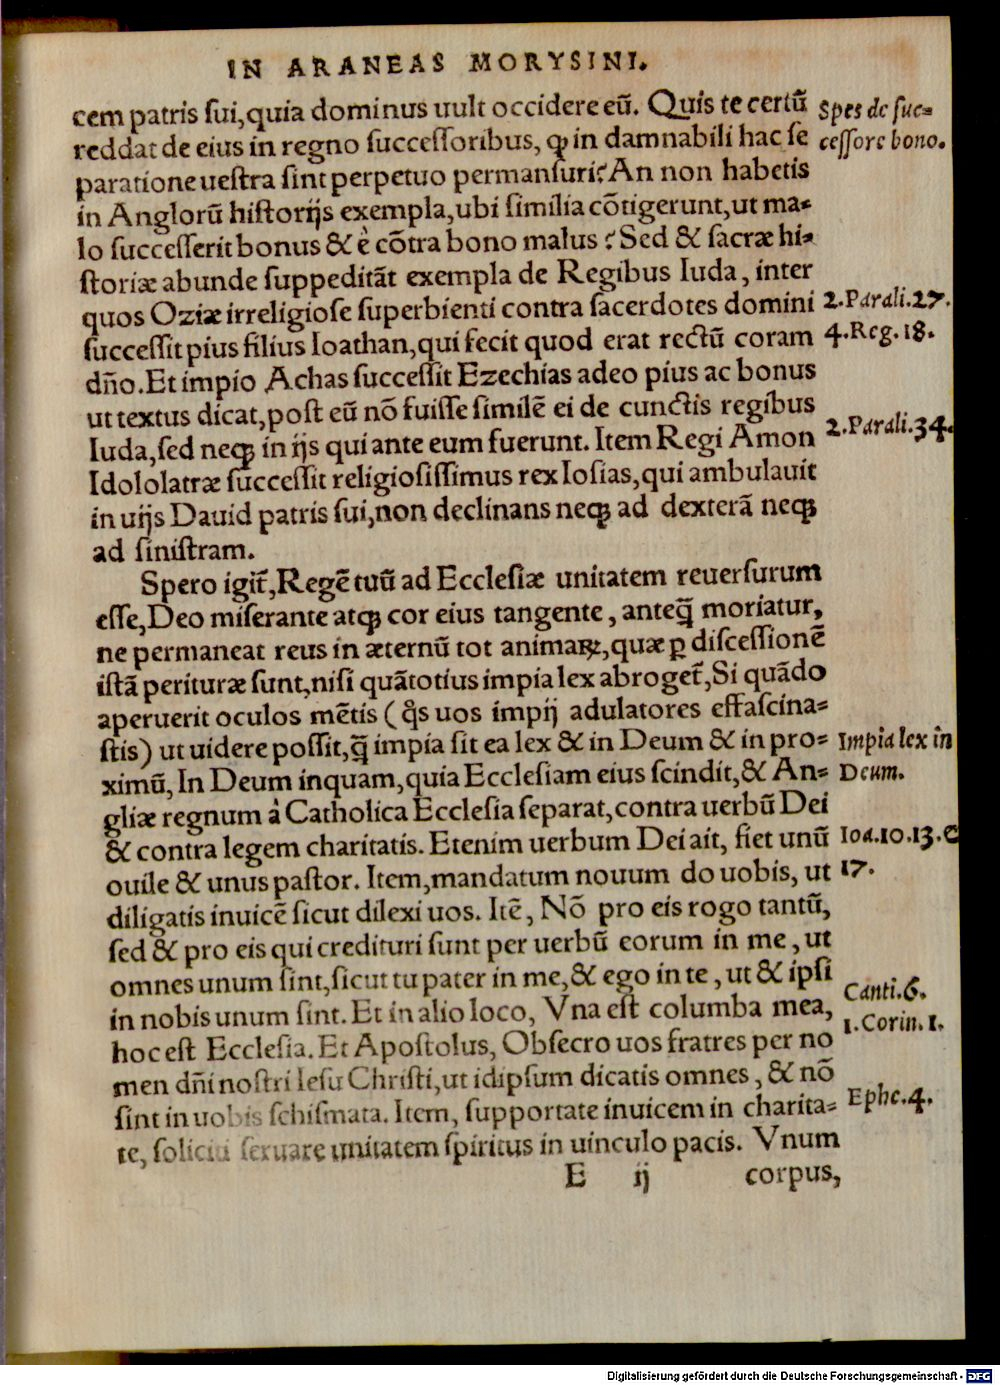 IN ARANEAS MORYSINI.
cem patris ſui, quia dominus uult occidere eũ. Quis te certũ
Spes de ſuc=
reddat de eius in regno ſucceſſoribus, ꝙ in damnabili hac ſe
ceſſore bono.
paratione ueſtra ſint perpetuo permanſuri? An non habetis
in Anglorũ hiſtorijs exempla, ubi ſimilia cõtigerunt, ut ma=
lo ſucceſſerit bonus & è cõtra bono malus? Sed & ſacræ hi=
ſtoriæ abunde ſuppeditãt exempla de Regibus Iuda, inter
quos Oziæ irreligioſe ſuperbienti contra ſacerdotes domini
2. Parali. 27.
ſucceſſit pius filius Ioathan, qui fecit quod erat rectũ coram
4. Reg. 18.
dño. Et impio Achas ſucceſſit Ezechias adeo pius ac bonus
ut textus dicat, poſt eũ nõ fuiſſe ſimilẽ ei de cunctis regibus
2. Parali. 34.
Iuda, ſed neqꝫ in ijs qui ante eum fuerunt. Item Regi Amon
Idololatræ ſucceſſit religioſiſſimus rex Ioſias, qui ambulauit
in uijs Dauid patris ſui, non declinans neqꝫ ad dexterã neqꝫ
ad ſiniſtram.
Spero igit̃, Regẽ tuũ ad Eccleſiæ unitatem reuerſurum
eſſe, Deo miſerante atqꝫ cor eius tangente, anteq̃ moriatur,
ne permaneat reus in æternũ tot animaꝝ, quæ ꝑ diſceſſionẽ
iſtã perituræ ſunt, niſi quãtotius impia lex abroget̃, Si quãdo
aperuerit oculos mẽtis (q̊s uos impij adulatores effaſcina=
ſtis) ut uidere poſſit, q̃ impia ſit ea lex & in Deum & in pro=
Impia lex in
ximũ, In Deum inquam, quia Eccleſiam eius ſcindit, & An=
Deum.
gliæ regnum à Catholica Eccleſia ſeparat, contra uerbũ Dei
& contra legem charitatis. Etenim uerbum Dei ait, fiet unũ
Ioa. 10. 13. &
ouile & unus paſtor. Item, mandatum nouum do uobis, ut
17.
diligatis inuicẽ ſicut dilexi uos. Itẽ, Nõ pro eis rogo tantũ,
ſed & pro eis qui credituri ſunt per uerbũ eorum in me, ut
omnes unum ſint, ſicut tu pater in me, & ego in te, ut & ipſi
Canti. 6.
in nobis unum ſint. Et in alio loco, Vna eſt columba mea,
1. Corin. 1.
hoc eſt Eccleſia. Et Apoſtolus, Obſecro uos fratres per no
men dñi noſtri Ieſu Chriſti, ut idipſum dicatis omnes, & nõ
ſint in uobis ſchiſmata. Item, ſupportate inuicem in charita=
Ephe. 4.
te, ſoliciti ſeruare unitatem ſpiritus in uinculo pacis. Vnum
E ij corpus,
Digitalisierung gefördert durch die Deutsche Forschungsgemeinschaft - DFG